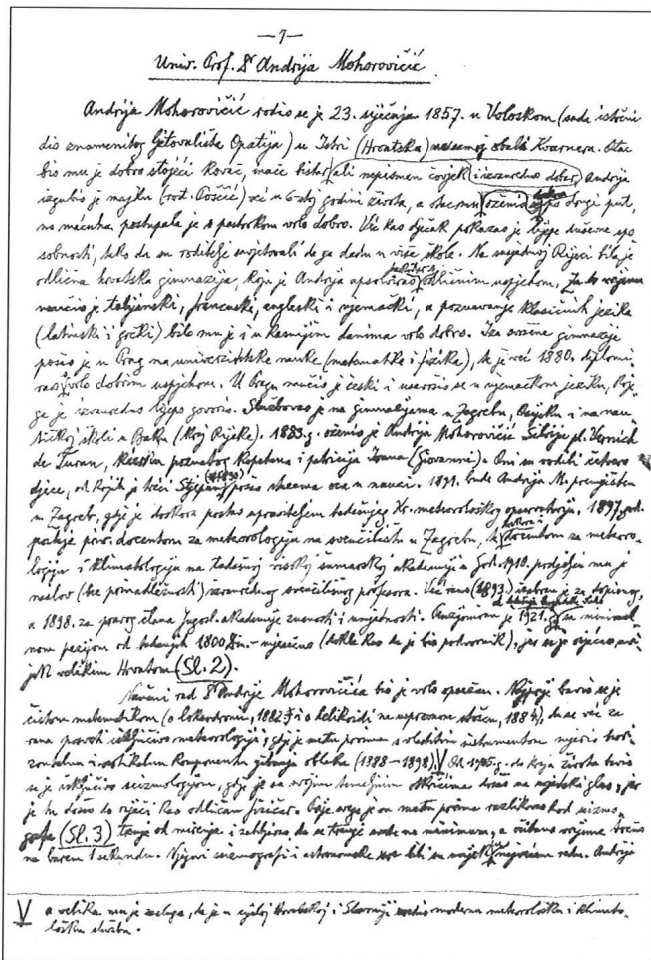 —7—
Univ. Prof. Dr Andrija Mohorovičić
Andrija Mohorovičić rodio se je 23. siječnja 1857. u Voloskom (sada istočni
dio znamenitog ljetovališta Opatija) u Istri (Hrvatska) na samoj obali Kvarnera. Otac
bio mu je dobro stojeći kovač, inače bistar, ali nepismen čovjek i izvanredno dobar. Andrija
izgubio je majku (rođ. Poščić) već u godini života, a otac mu oženio drugi put,
no maćuha postupala je s pastorkom vrlo dobro. Već kao dječak pokazao je lijepe duševne spo
sobnosti, tako da su roditelje savjetovali da ga dadu u više škole. Na susjednoj Rijeci bila je
odlična hrvatska gimnazija, koju je Andrija apsolvirao odličnim uspjehom. Za to vrijeme
naučio je talijanski, francuski, engleski i njemački, a poznavanje klasičnih jezika
(latinski i grčki) bilo mu je i u kasnijim danima vrlo dobro. Iza svršene gimnazije
pošao je u Prag na univerzitetske nauke (matematika i fizika), te je već 1880. diplomi
rao vrlo dobrim uspjehom. U Pragu naučio je češki i usavršio se u njemačkom jeziku, koje
ga je izvanredno lijepo govorio. Službovao je na gimnazijama u Zagrebu, Osijeku i na nau
tičkoj školi u Bakru (kraj Rijeke). 1883.g. oženio je Andrija Mohorovičić Silviju pl. Vernich
de Turan, kćerkom poznatog kapetana i patricija Ivana (Giovanni). Oni su rodili četvoro
djece, od kojih je treći Stjepan pošao stazama oca u nauci. 1891. bude Andrija M. premješten
u Zagreb, gdje je doskora postao upraviteljem tadašnjeg kr. meteorološkog opservatorija. 1897. god.
postaje priv. docentom za meteorologiju na sveučilištu u Zagrebu, docentom za meteoro
logiju i klimatologiju na tadašnjoj visokoj šumarskoj akademiji. God. 1910. podijeljen mu je
naslov (bez pripadležnosti) izvanrednog sveučilišnog profesora. Već rano (1893.) izabran je za dopisnog,
a 1898. za pravog člana Jugosl. akademije znanosti i umjetnosti. Penzioniran je 1921.g. sa minimal
nom penzijom od tadanjih 1800 Din. mjesečno (dotle kao da je bio podvornik), jer se je osjećao uvi
jek velikim Hrvatom (Sl. 2).
Naučni rad Dr Andrije Mohorovičića bio je vrlo opsežan. Najprije bavio se je
čistom matematikom (o loksodromi, 1882. i o helikoidi na uspravnom stošcu, 1884), da se već za
rana posveti isključivo meteorologiji, gdje je među prvima s vlastitim instrumentom mjerio hori
zontalnu i vertikalnu komponentu gibanja oblaka (1888–1898). V Od 1906.g. do kraja života bavio
se je isključivo seizmologijom, gdje je sa svojim temeljnim otkrićima došao na svjetski glas, jer
je tu došao do riječi kao odličan fizičar. je on među prvima razlikovao kod seizmo
grafa (Sl. 3) trenje od mirenja i zahtjevao da se trenje svede na minimum, a očitano vrijeme točno
na barem 1 sekundu. Njegovi seizmografi i astronomske ure bili su uvijek u najvećem redu. Andrija
V a velika mu je zasluga, da je u cijeloj Hrvatskoj i Slavoniji moderna meteorološku i klimato
lošku službu.